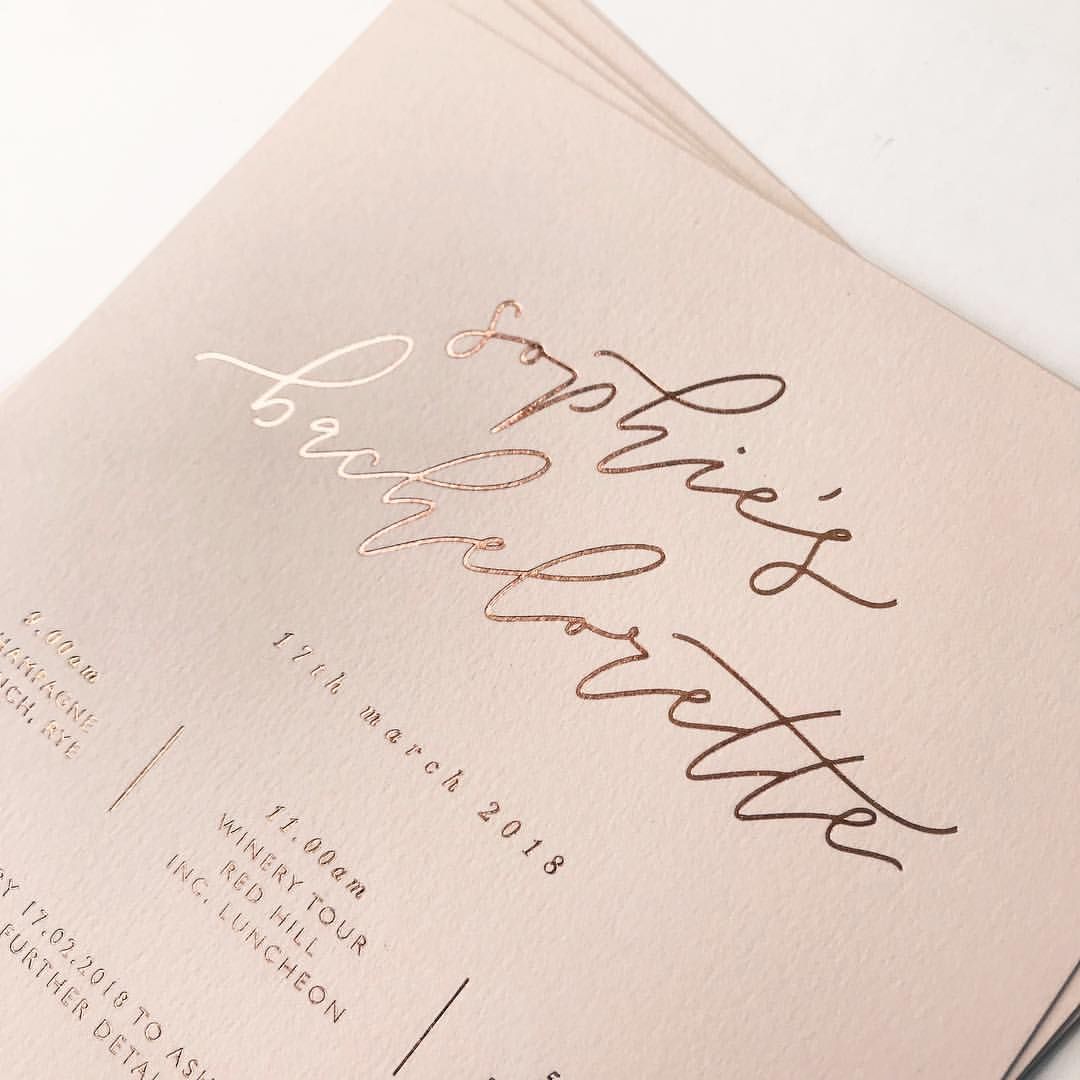 sophie's
bachelorette
17th march 2018
9.00am
RYE
11.00am
WINERY TOUR
RED HILL
INC. LUNCHEON
17.02.2018 TO
FURTHER